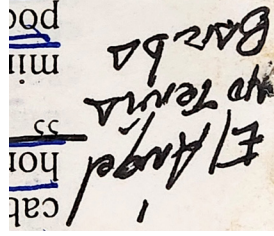 cab
hon
55
min
pod
¡El Ángel
no tenia
Barba